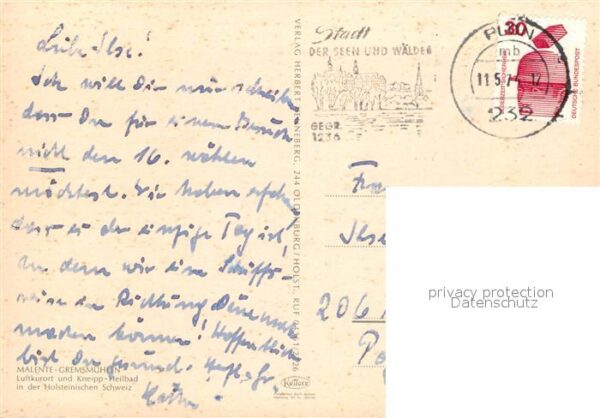 Liebe Ilse!
Ich will Dir nur schreiben
dass Du für einen Besuch
nicht den 16. wählen
möchtest. Wir haben erfahren
dass es der einzige Tag ist,
an dem wir eine Schiffs-
reise in Richtung Dänemark
machen können! Hoffentlich
bist Du gesund.
MALENTE-GREMSMÜHLEN
Luftkurort und Kneipp-Heilbad
in der Holsteinischen Schweiz
VERLAG HERBERT HENNEBERG, 244 OLDENBURG/HOLST. RUF
Stadt
DER SEEN UND WÄLDER
GEGR.
1236
PLÖN
mb
11.5.7
232
30
DEUTSCHE BUNDESPOST
Ilse
206
privacy protection
Datenschutz